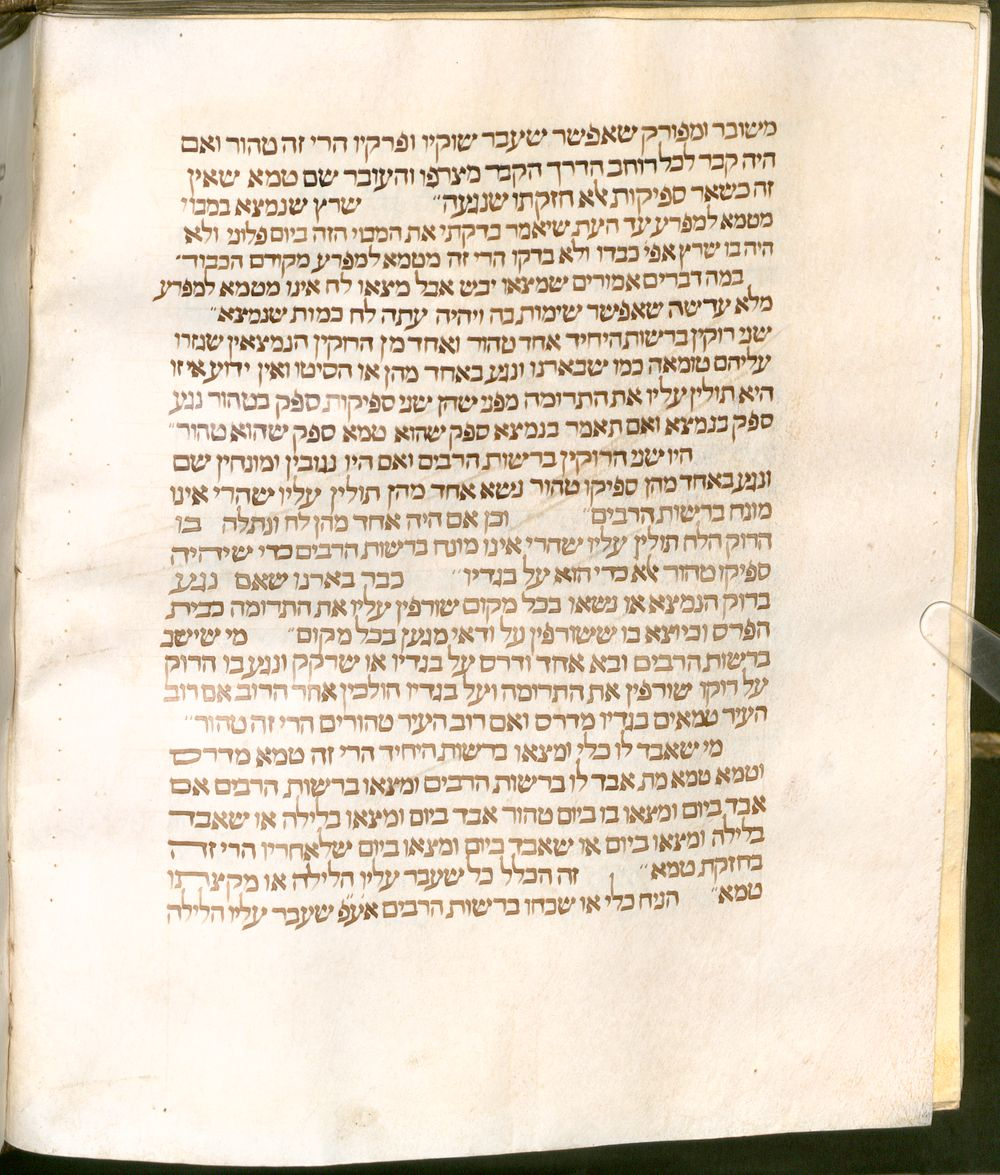 משובר ומפורק שאפשר שעבר שוקיו ופרקיו הרי זה טהור ואם
היה קבר לכל רוחב הדרך הקבר מצרפו והעובר שם טמא שאין
זה כשאר ספיקות אלא חזקתו שנגעה״ שרץ שנמצא במבוי
מטמא למפרע עד העת שיאמר בדקתי את המבוי הזה ביום פלוני ולא
היה בו שרץ אפי כבדו ולא בדקו הרי זה מטמא למפרע מקודם הכבוד׳
במה דברים אמורים שמצאו יבש אבל מצאו לח אינו מטמא למפרע
מלא עד שעה שאפשר שימות בה ויהיה עתה לח כמות שנמצא״
שני רוקין ברשות היחיד אחד טהור ואחד מן הרוקין הנמצאין שגזרו
עליהם טומאה כמו שבארנו ונגע באחד מהן או הסיטו ואין ידוע אי זו
היא תולין עליו את התרומה מפני שהן שני ספיקות ספק בטהור נגע
ספק בנמצא ואם תאמר בנמצא ספק שהוא טמא ספק שהוא טהור״
היו שני הרוקין ברשות הרבים ואם היו נגובין ומונחין שם
ונגע באחד מהן ספיקו טהור נשא אחד מהן תולין עליו שהרי אינו
מונח ברשות הרבים״ וכן אם היה אחד מהן לח ונתלה בו
הרוק הלח תולין עליו שהרי אינו מונח ברשות הרבים כדי שיהיה
ספיקו טהור אלא כרי הוא על בגדיו״ כבר בארנו שאם נגע
ברוק הנמצא או נשאו בכל מקום שורפין עליו את התרומה כבית
הפרס וכיוצא בו ששורפין על ודאי מגען בכל מקום״ מי שישב
ברשות הרבים ובא אחד ודרס על בגדיו או שרקק ונגע בו הרוק
על רוקו שורפין את התרומה ועל בגדיו הולכין אחר הרוב אם רוב
העיר טמאים בגדיו מדרס ואם רוב העיר טהורים הרי זה טהור״
מי שאבד לו כלי ומצאו ברשות היחיד הרי זה טמא מדרס
וטמא טמא מת אבד לו ברשות הרבים ומצאו ברשות הרבים אם
אבד ביום ומצאו בו ביום טהור אבד ביום ומצאו בלילה או שאבד
בלילה ומצאו ביום או שאבד ביום ומצאו ביום שלאחריו הרי זה
בחזקת טמא״ זה הכלל כל שעבר עליו הלילה או מקצתו
טמא״ הניח כלי או שכחו ברשות הרבים אע״פ שעבר עליו הלילה